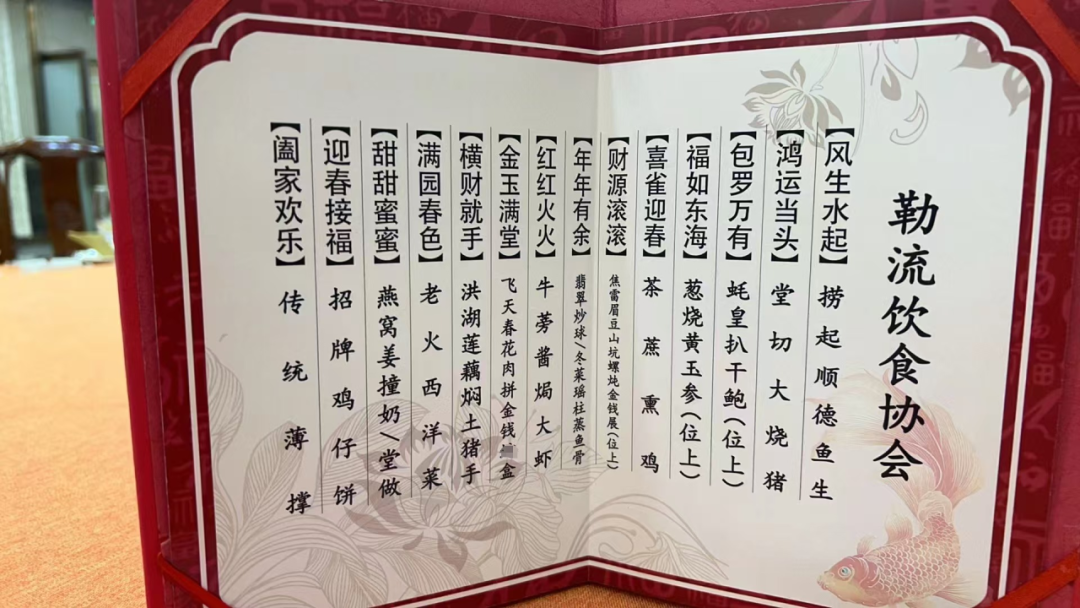 勒流饮食协会
【风生水起】捞起顺德鱼生
【鸿运当头】堂切大烧猪
【包罗万有】蚝皇扒干鲍(位上)
【福如东海】葱烧黄玉参(位上)
【喜雀迎春】茶蔗熏鸡
【财源滚滚】焦雷眉豆山坑螺炖金钱展(位上)
【年年有余】翡翠炒球/冬菜瑶柱蒸鱼骨
【红红火火】牛蒡酱焗大虾
【金玉满堂】飞天春花肉拼金钱盒
【横财就手】洪湖莲藕焖土猪手
【满园春色】老火西洋菜
【甜甜蜜蜜】燕窝姜撞奶/堂做
【迎春接福】招牌鸡仔饼
【阖家欢乐】传统薄撑